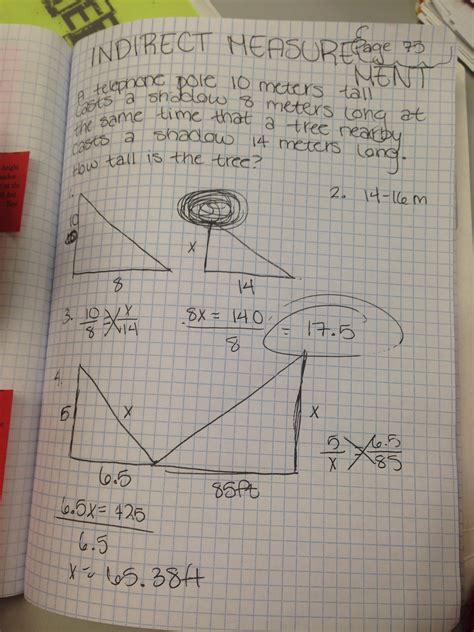 INDIRECT MEASURE
MENT
Page 73
A telephone pole 10 meters tall
casts a shadow 8 meters long at
the same time that a tree nearby
casts a shadow 14 meters long.
How tall is the tree?
2. 14-16m
10
8
x
14
3. 10/8 = x/14
8x = 140
8
= 17.5
4.
5
x
6.5
85ft
x
5/x = 6.5/85
6.5x = 425
6.5
x = 65.38ft